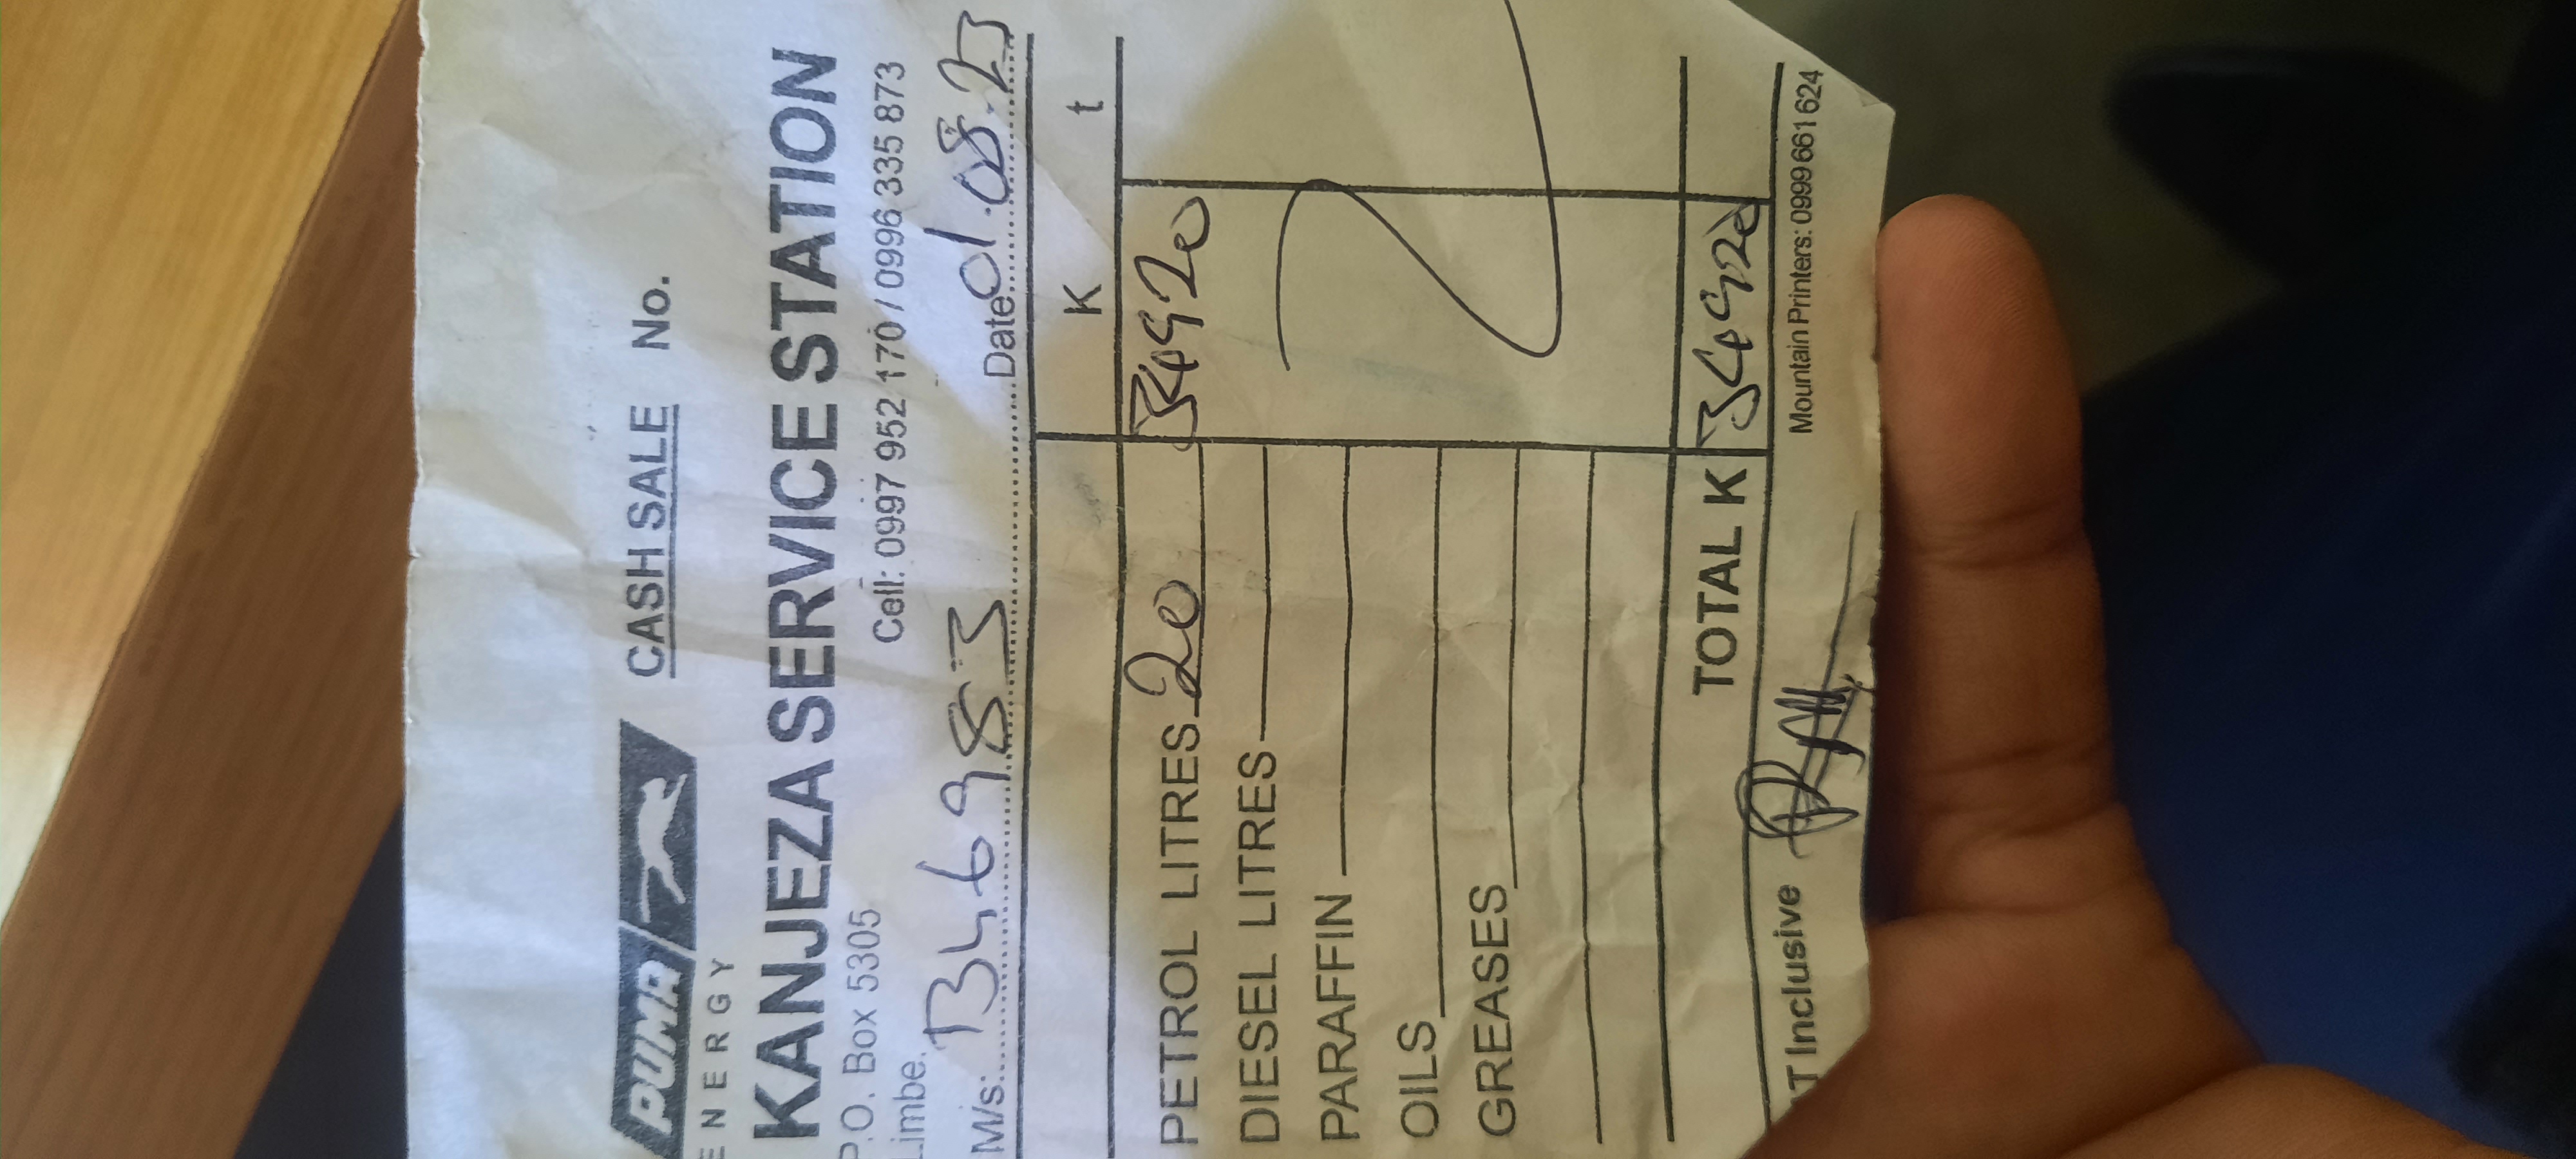 PUMA
ENERGY
CASH SALE No.
KANJEZA SERVICE STATION
P.O. Box 5305
Limbe.
Cell: 0997 952 170 / 0996 335 873
M/s: BL6983 Date 01.08.23
K t
PETROL LITRES 20 34920
DIESEL LITRES
PARAFFIN
OILS
GREASES
TOTAL K 34920
T Inclusive
Mountain Printers: 0999 661 624